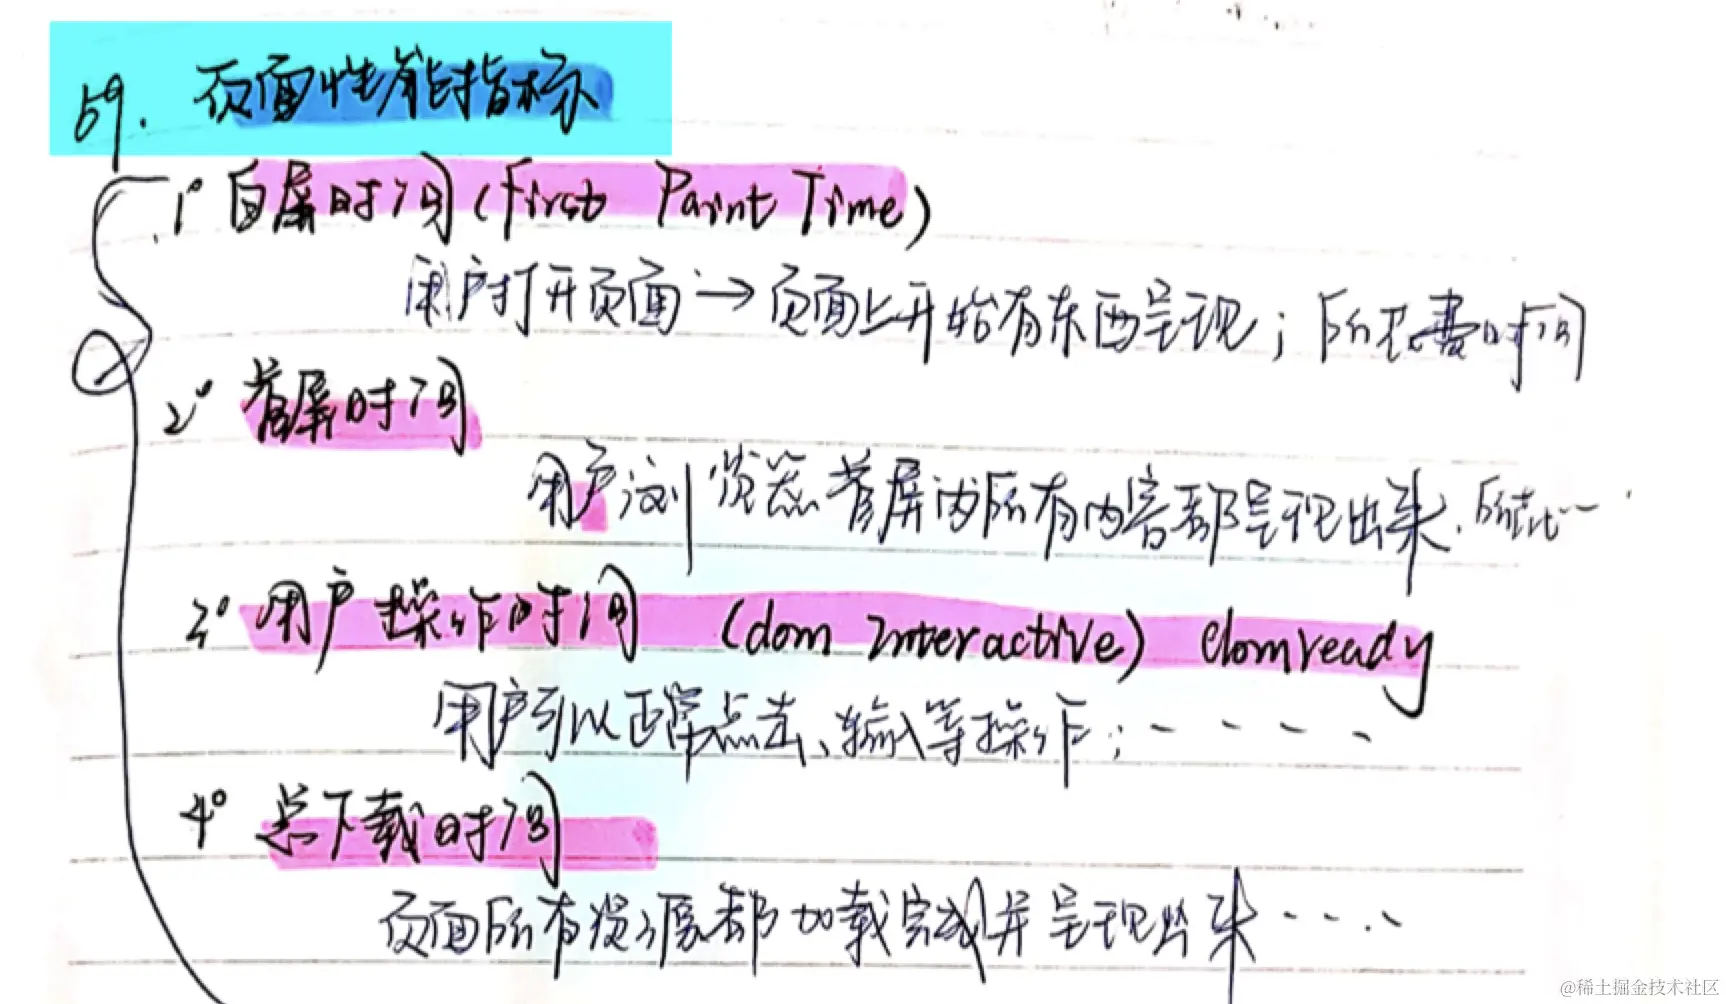 59. 页面性能指标
1° 白屏时间(First Paint Time)
用户打开页面→页面上开始有东西呈现；所花费时间
2° 首屏时间
用户浏览器首屏内所有内容都呈现出来.所花…
3° 用户操作时间 (dom Interactive) domready
用户可以正常点击、输入等操作；----
4° 总下载时间
页面所有资源都加载完成并呈现出来----
@稀土掘金技术社区